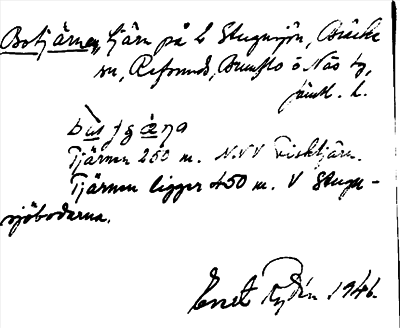 Botjärnen, tjärn på L Stugusjön, Bräcke
sn, Refsunds, Brunflo o Näs tg,
Jämtl. l.
Tjärnen 250 m. NNV Fisktjärn.
Tjärnen ligger 450 m. V Stugu-
sjöbodarna.
Ernst Rydén 1946.